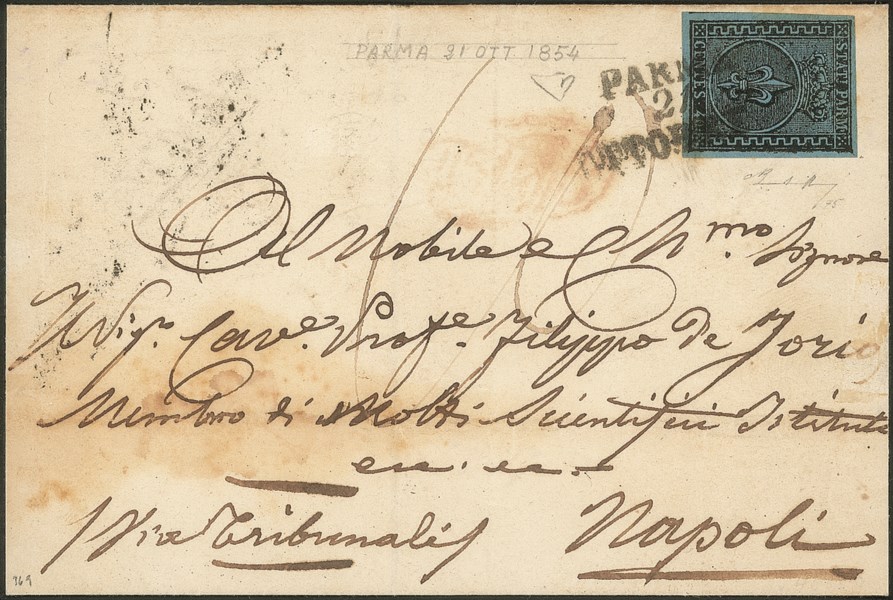 PARMA 21 OTT 1854
PAR
2
OTTOB
STATI PARM
CENTES. 40
Al Nobile e Ch.mo Signore
Il Sigr. Cave. Profe. Filippo De Jorio
Membro di Molti Scientifici Istituti
ecc. ecc.
Via Tribunali
Napoli
969